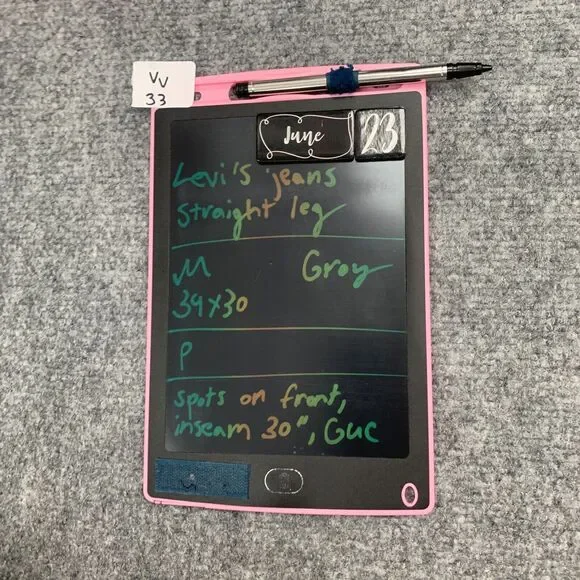 VV
33
June 23
Levi's jeans
straight leg
M Gray
34x30
P
spots on front,
inseam 30", GUC